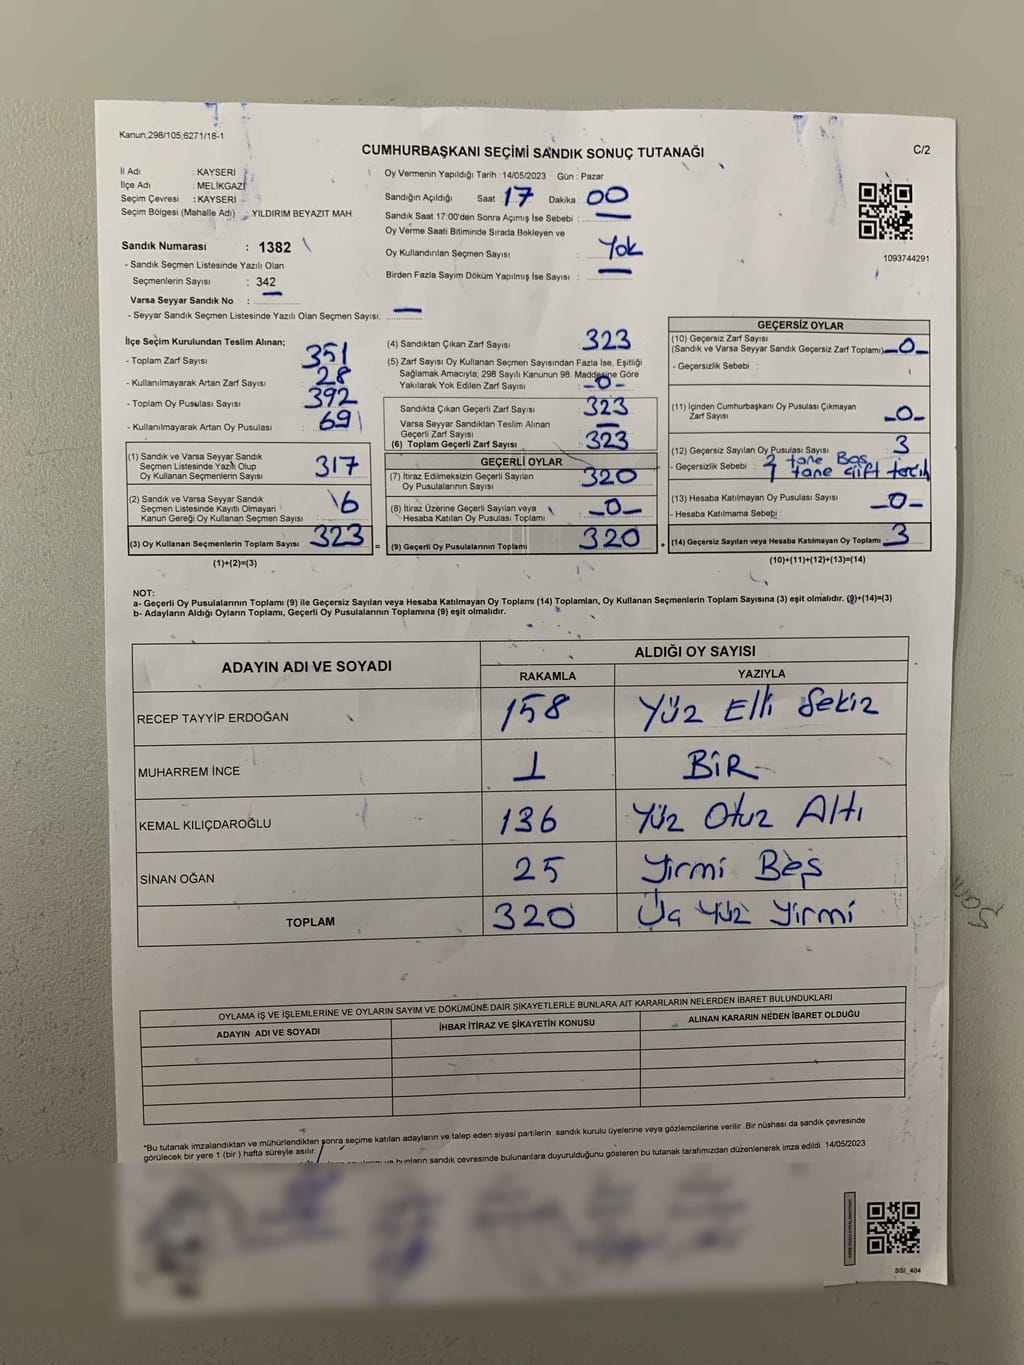 Kanun;298/105;6271/18-1
CUMHURBAŞKANI SEÇİMİ SANDIK SONUÇ TUTANAĞI
C/2
İl Adı : KAYSERİ
İlçe Adı : MELİKGAZİ
Seçim Çevresi : KAYSERİ
Seçim Bölgesi (Mahalle Adı) : YILDIRIM BEYAZIT MAH.
Sandık Numarası : 1382
- Sandık Seçmen Listesinde Yazılı Olan
Seçmenlerin Sayısı : 342
Varsa Seyyar Sandık No : —
- Seyyar Sandık Seçmen Listesinde Yazılı Olan Seçmen Sayısı: —
Oy Vermenin Yapıldığı Tarih : 14/05/2023 Gün : Pazar
Sandığın Açıldığı Saat : 17 Dakika : 00
Sandık Saat 17:00'den Sonra Açımış İse Sebebi : —
Oy Verme Saati Bitiminde Sırada Bekleyen ve
Oy Kullandırılan Seçmen Sayısı : Yok
Birden Fazla Sayım Döküm Yapılmış İse Sayısı : —
1093744291
İlçe Seçim Kurulundan Teslim Alınan;
- Toplam Zarf Sayısı : 351
- Kullanılmayarak Artan Zarf Sayısı : 28
- Toplam Oy Pusulası Sayısı : 392
- Kullanılmayarak Artan Oy Pusulası : 69
(1) Sandık ve Varsa Seyyar Sandık
Seçmen Listesinde Yazılı Olup
Oy Kullanan Seçmenlerin Sayısı : 317
(2) Sandık ve Varsa Seyyar Sandık
Seçmen Listesinde Kayıtlı Olmayan
Kanun Gereği Oy Kullanan Seçmen Sayısı : 6
(3) Oy Kullanan Seçmenlerin Toplam Sayısı : 323
(1)+(2)=(3)
(4) Sandıktan Çıkan Zarf Sayısı : 323
(5) Zarf Sayısı Oy Kullanan Seçmen Sayısından Fazla İse, Eşitliği
Sağlamak Amacıyla; 298 Sayılı Kanunun 98. Maddesine Göre
Yakılarak Yok Edilen Zarf Sayısı : -0-
Sandıkta Çıkan Geçerli Zarf Sayısı : 323
Varsa Seyyar Sandıktan Teslim Alınan
Geçerli Zarf Sayısı : —
(6) Toplam Geçerli Zarf Sayısı : 323
GEÇERLİ OYLAR
(7) İtiraz Edilmeksizin Geçerli Sayılan
Oy Pusulalarının Sayısı : 320
(8) İtiraz Üzerine Geçerli Sayılan veya
Hesaba Katılan Oy Pusulası Toplamı : -0-
= (9) Geçerli Oy Pusulalarının Toplamı : 320
GEÇERSİZ OYLAR
(10) Geçersiz Zarf Sayısı
(Sandık ve Varsa Seyyar Sandık Geçersiz Zarf Toplamı) -0-
- Geçersizlik Sebebi :
(11) İçinden Cumhurbaşkanı Oy Pusulası Çıkmayan
Zarf Sayısı -0-
(12) Geçersiz Sayılan Oy Pusulası Sayısı 3
- Geçersizlik Sebebi : 2 tane Boş
1 tane çift tercih
(13) Hesaba Katılmayan Oy Pusulası Sayısı -0-
- Hesaba Katılmama Sebebi :
+ (14) Geçersiz Sayılan veya Hesaba Katılmayan Oy Toplamı : 3
(10)+(11)+(12)+(13)=(14)
NOT:
a- Geçerli Oy Pusulalarının Toplamı (9) ile Geçersiz Sayılan veya Hesaba Katılmayan Oy Toplamı (14) Toplamları, Oy Kullanan Seçmenlerin Toplam Sayısına (3) eşit olmalıdır. (9)+(14)=(3)
b- Adayların Aldığı Oyların Toplamı, Geçerli Oy Pusulalarının Toplamına (9) eşit olmalıdır.
ADAYIN ADI VE SOYADI
ALDIĞI OY SAYISI
RAKAMLA YAZIYLA
RECEP TAYYİP ERDOĞAN 158 Yüz Elli Sekiz
MUHARREM İNCE 1 BİR
KEMAL KILIÇDAROĞLU 136 Yüz Otuz Altı
SİNAN OĞAN 25 Yirmi Beş
TOPLAM 320 Üç Yüz Yirmi
OYLAMA İŞ VE İŞLEMLERİNE VE OYLARIN SAYIM VE DÖKÜMÜNE DAİR ŞİKAYETLERLE BUNLARA AİT KARARLARIN NELERDEN İBARET BULUNDUKLARI
ADAYIN ADI VE SOYADI İHBAR İTİRAZ VE ŞİKAYETİN KONUSU ALINAN KARARIN NEDEN İBARET OLDUĞU
"Bu tutanak imzalandıktan ve mühürlendikten sonra seçime katılan adayların ve talep eden siyasi partilerin sandık kurulu üyelerine veya gözlemcilerine verilir. Bir nüshası da sandık çevresinde
görülecek bir yere 1 (bir ) hafta süreyle asılır.
ve bunların sandık çevresinde bulunanlara duyurulduğunu gösteren bu tutanak tarafımızdan düzenlenerek imza edildi. 14/05/2023
SSI_404